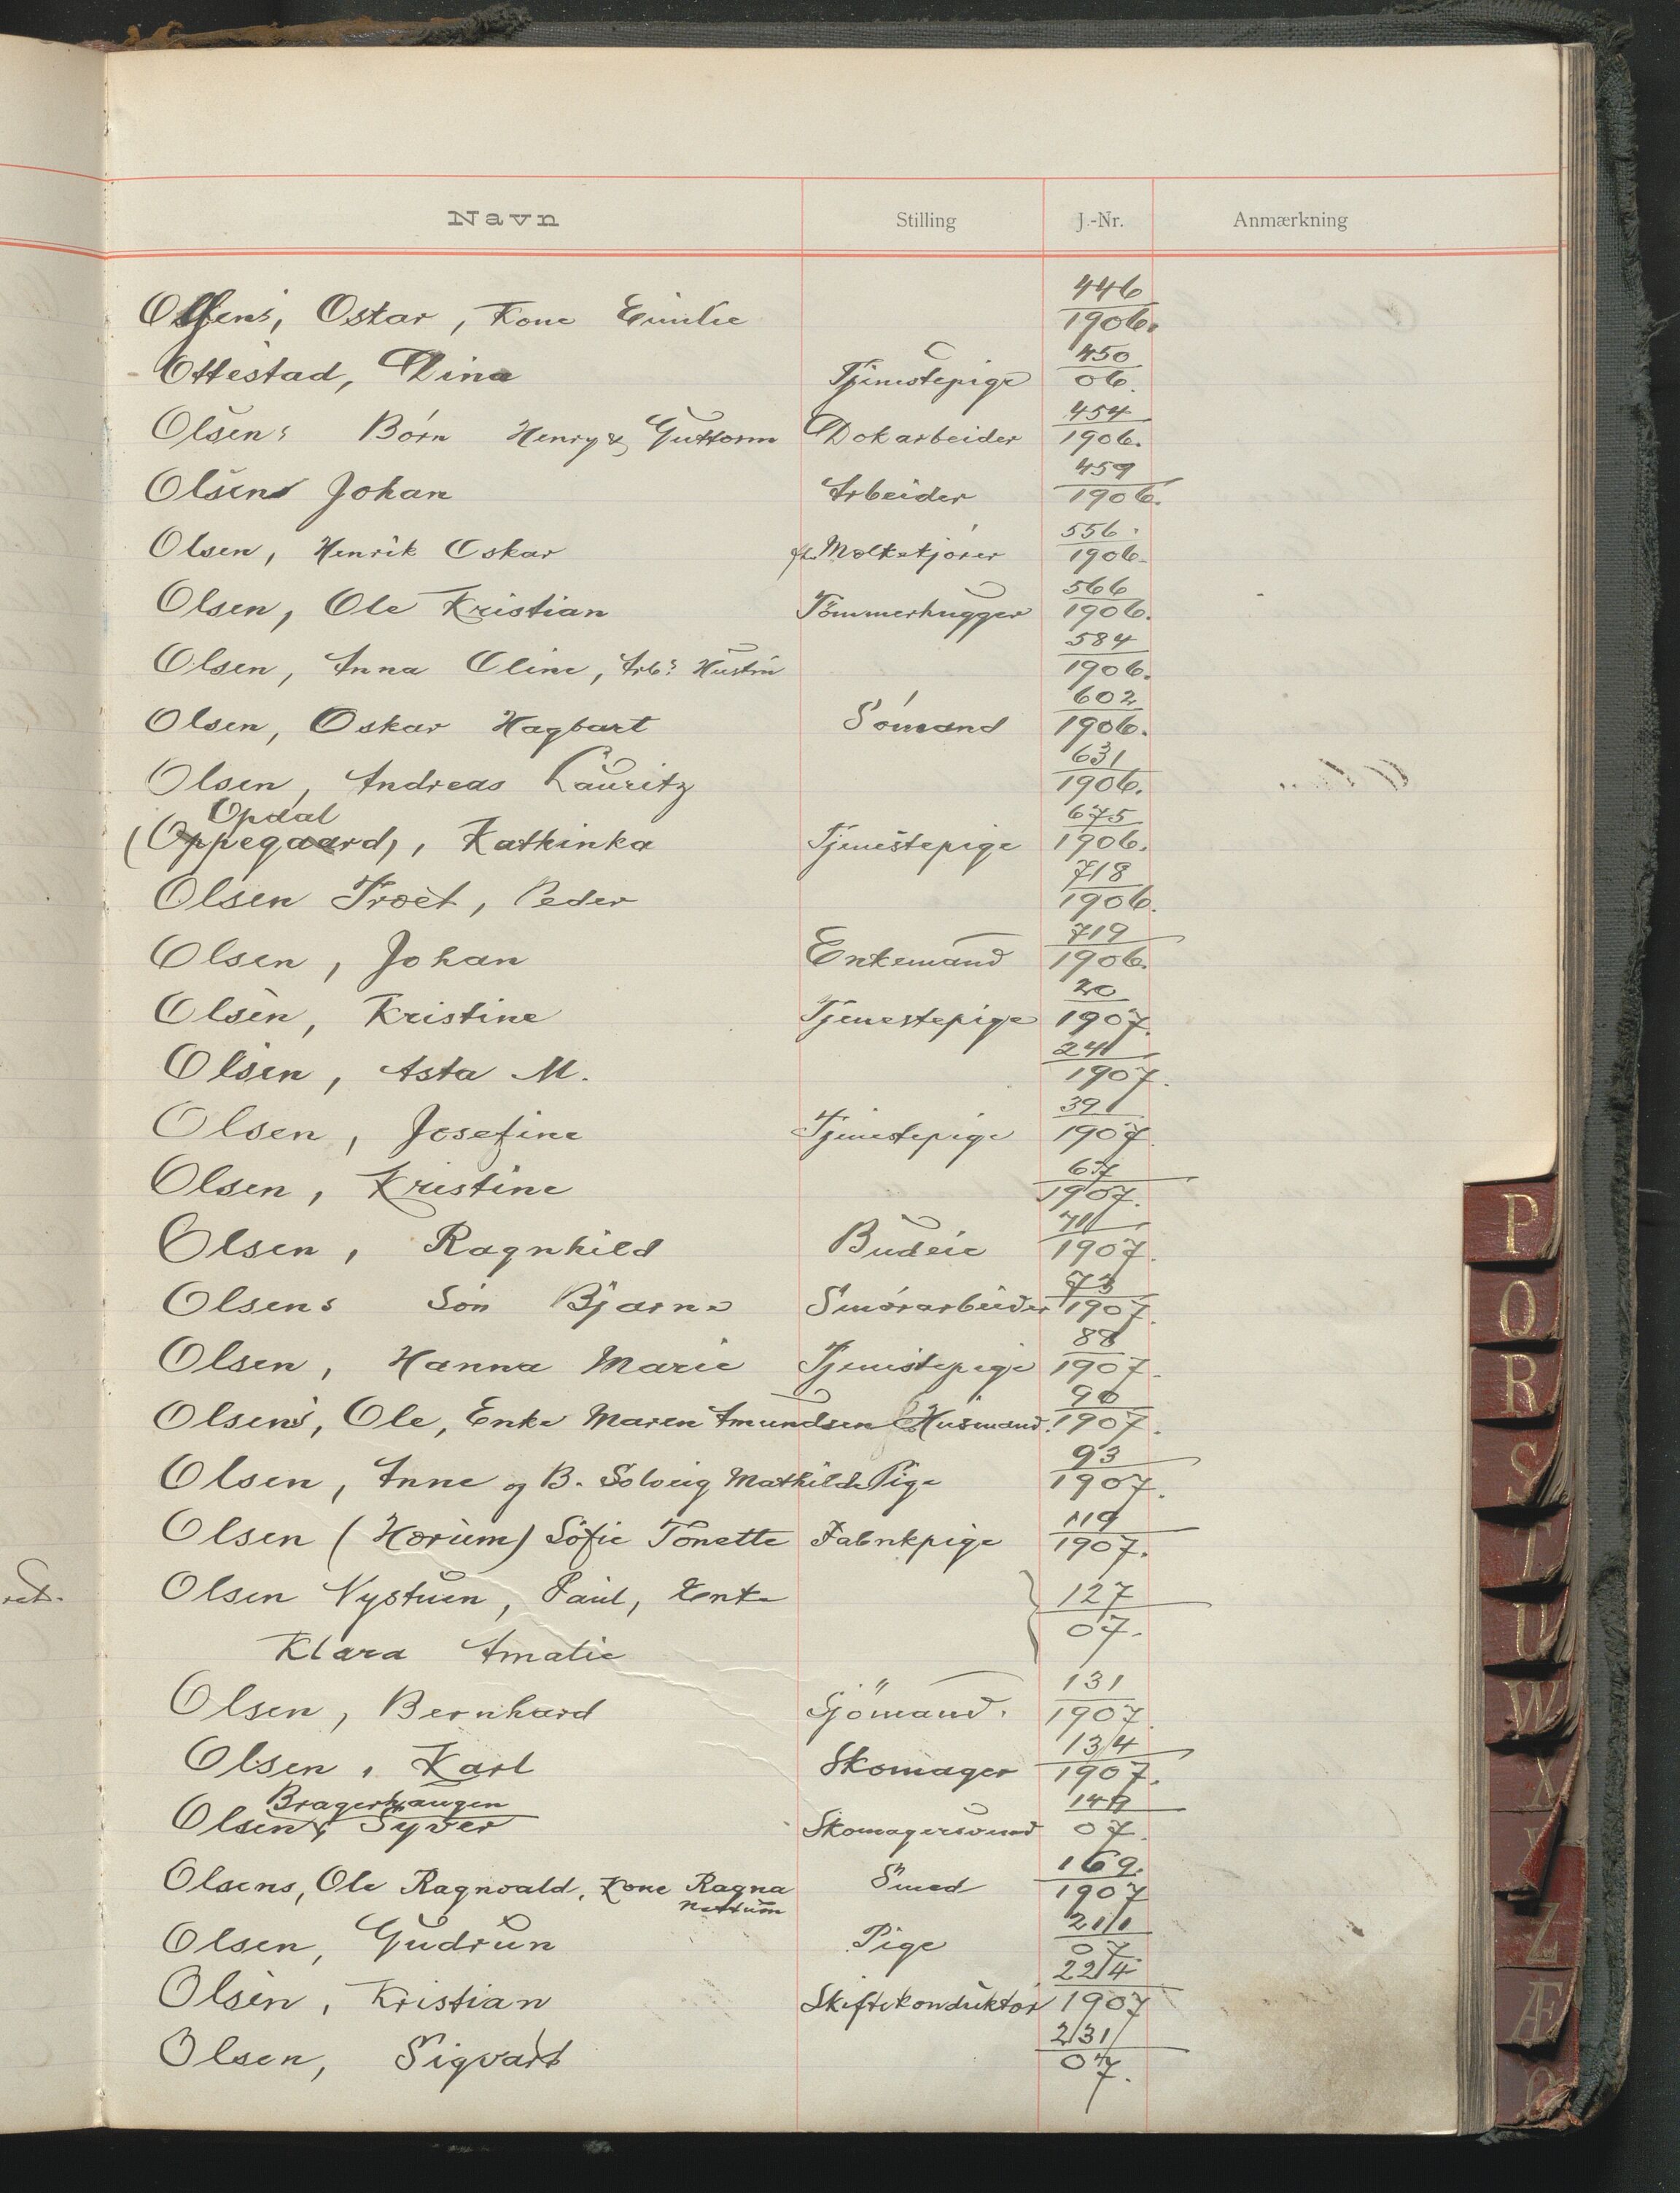 Navn Stilling J.-Nr. Anmærkning
Olsens, Oskar, Kone Emilie 446/1906.
Ottestad, Dina Tjenestepige 450/06.
Olsens Børn Henry & Guttorm Dokarbeider 454/1906.
Olsen Johan Arbeider 459/1906.
Olsen, Henrik Oskar fh. Melkekjører 556/1906.
Olsen, Ole Kristian Tømmerhugger 566/1906.
Olsen, Anna Oline, Arbs Hustru 584/1906.
Olsen, Oskar Hagbart Sømand 602/1906.
Olsen, Andreas Lauritz 631/1906.
Opdal
(Oppegaard), Kathinka Tjenestepige 675/1906.
Olsen Troët, Peder 718/1906.
Olsen, Johan Enkemand 719/1906.
Olsen, Kristine Tjenestepige 20/1907.
Olsen, Asta M. 241/1907.
Olsen, Josefine Tjenestepige 391/1907.
Olsen, Kristine 67/1907.
Olsen, Ragnhild Budeie 711/1907.
Olsens Søn Bjarne Smørarbeider 73/1907.
Olsen, Hanna Marie Tjenestepige 88/1907.
Olsens, Ole, Enke Maren Amundsen Husmand. 90/1907.
Olsen, Anne og B. Solveig Mathilde Pige 93/1907.
Olsen (Hørum) Sofie Tonette Fabrikpige 119/1907.
Olsen Nystuen, Paul, Enke 127/07.
Klara Amalie
Olsen, Bernhard Sjömand. 131/1907.
Olsen, Karl Skomager 134/1907.
Bragerhaugen
Olsen, Syver Skomagersvend 07.
Olsens, Ole Ragnvald, Kone Ragna Smed 169./1907
Olsen, Gudrun Pige 211/07
Olsen, Kristian Skiftekonduktør 224/1907
Olsen, Sigvart 231/07.
P
O
R
S
T
U
W
X
Z
Æ